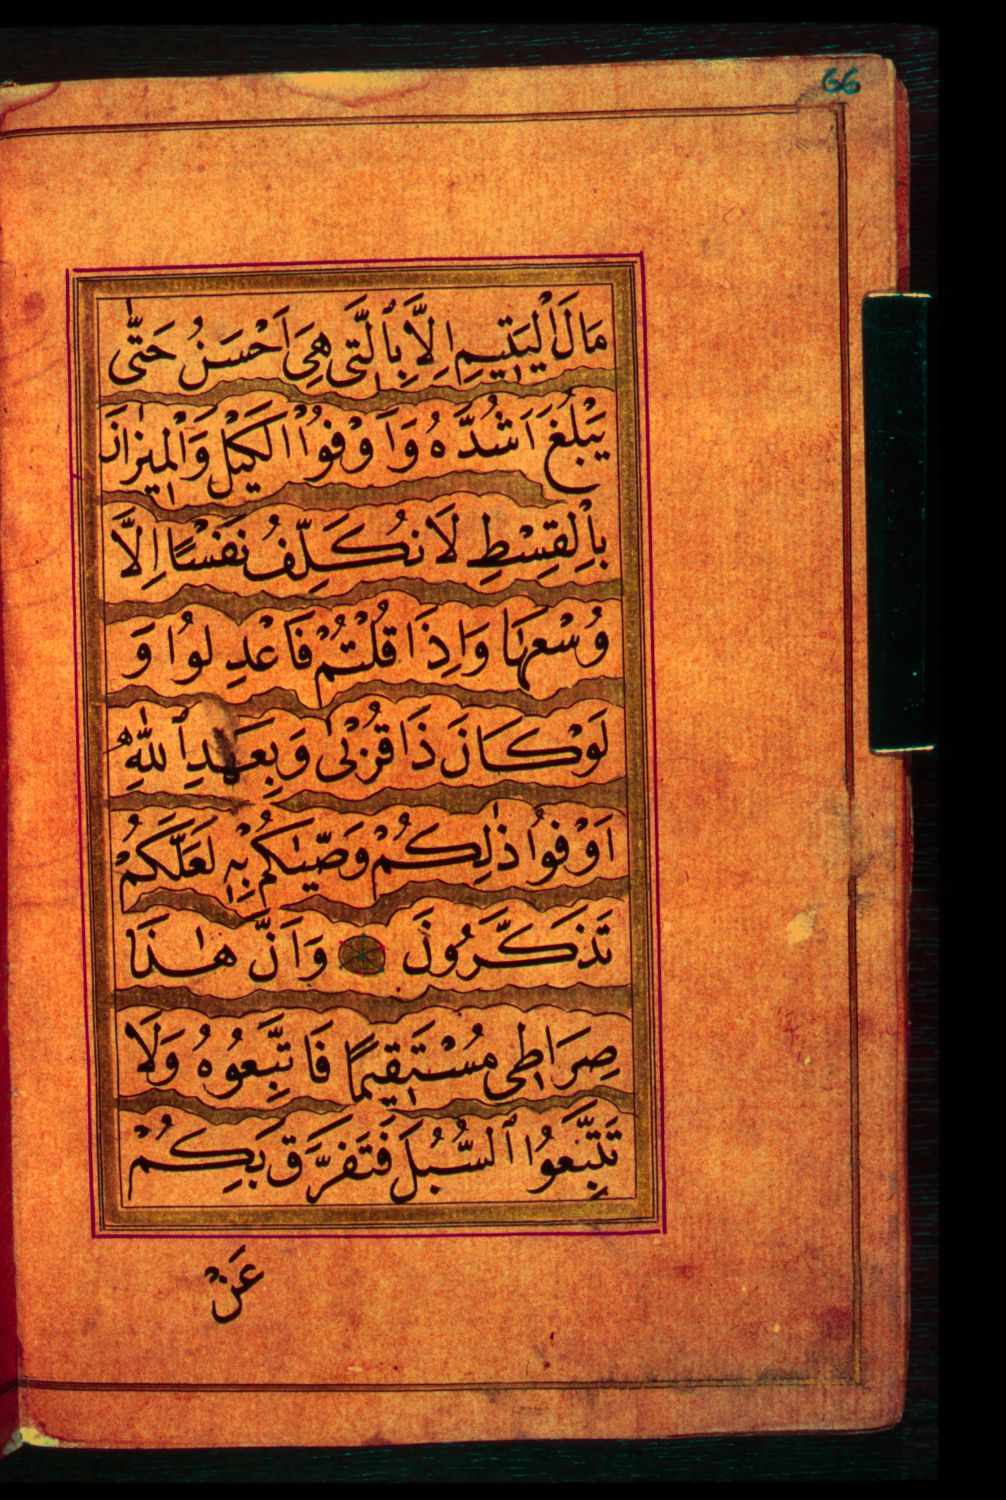 66
مَالَ الْيَتٖيمِ اِلَّا بِالَّتٖى هِىَ اَحْسَنُ حَتّٰى
يَبْلُغَ اَشُدَّهُ وَاَوْفُوا الْكَيْلَ وَالْمٖيزَانَ
بِالْقِسْطِ لَا نُكَلِّفُ نَفْسًا اِلَّا
وُسْعَهَا وَاِذَا قُلْتُمْ فَاعْدِلُوا وَ
لَوْ كَانَ ذَا قُرْبٰى وَبِعَهْدِ اللّٰهِ
اَوْفُوا ذٰلِكُمْ وَصّٰيكُمْ بِهٖ لَعَلَّكُمْ
تَذَكَّرُونَ وَاَنَّ هٰذَا
صِرَاطٖى مُسْتَقٖيمًا فَاتَّبِعُوهُ وَلَا
تَتَّبِعُوا السُّبُلَ فَتَفَرَّقَ بِكُمْ
عَنْ